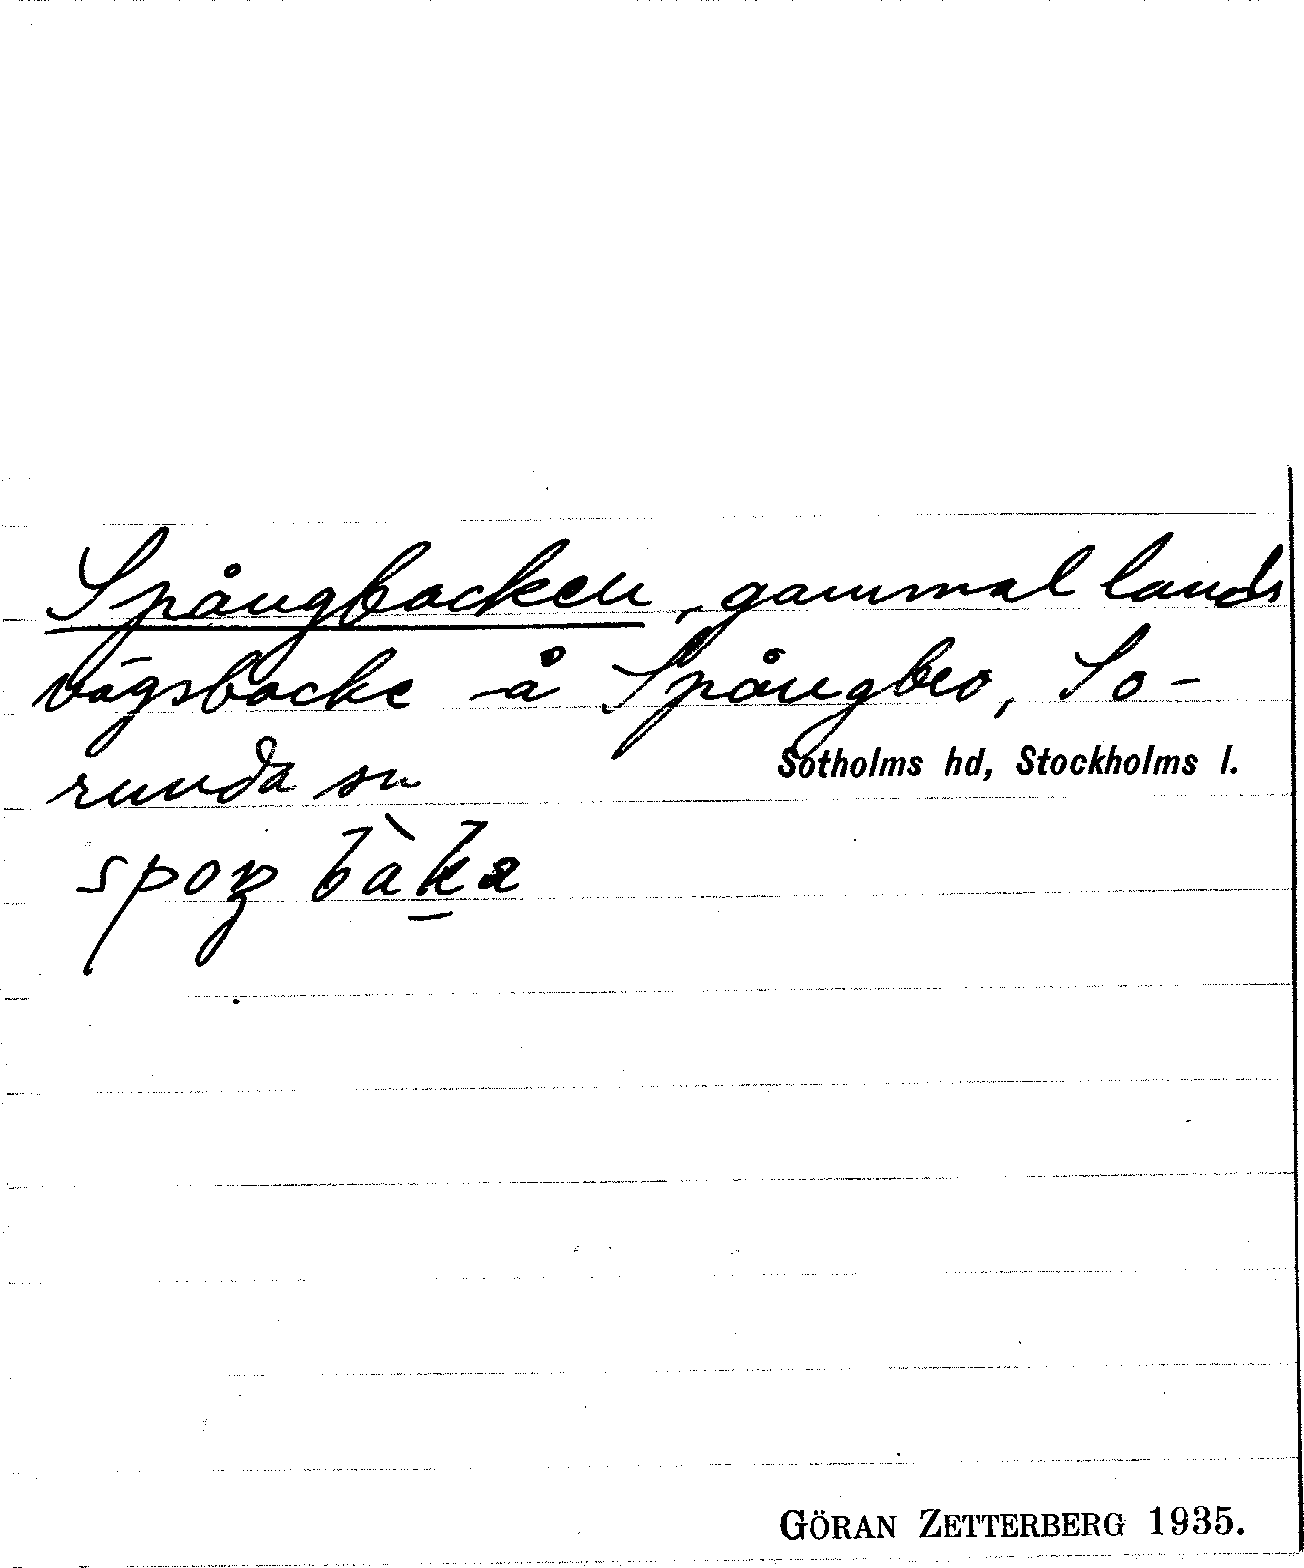 Spångbacken, gammal lands
vägsbacke å Spångbro, So-
runda sn
Sotholms hd, Stockholms l.
GÖRAN ZETTERBERG 1935.